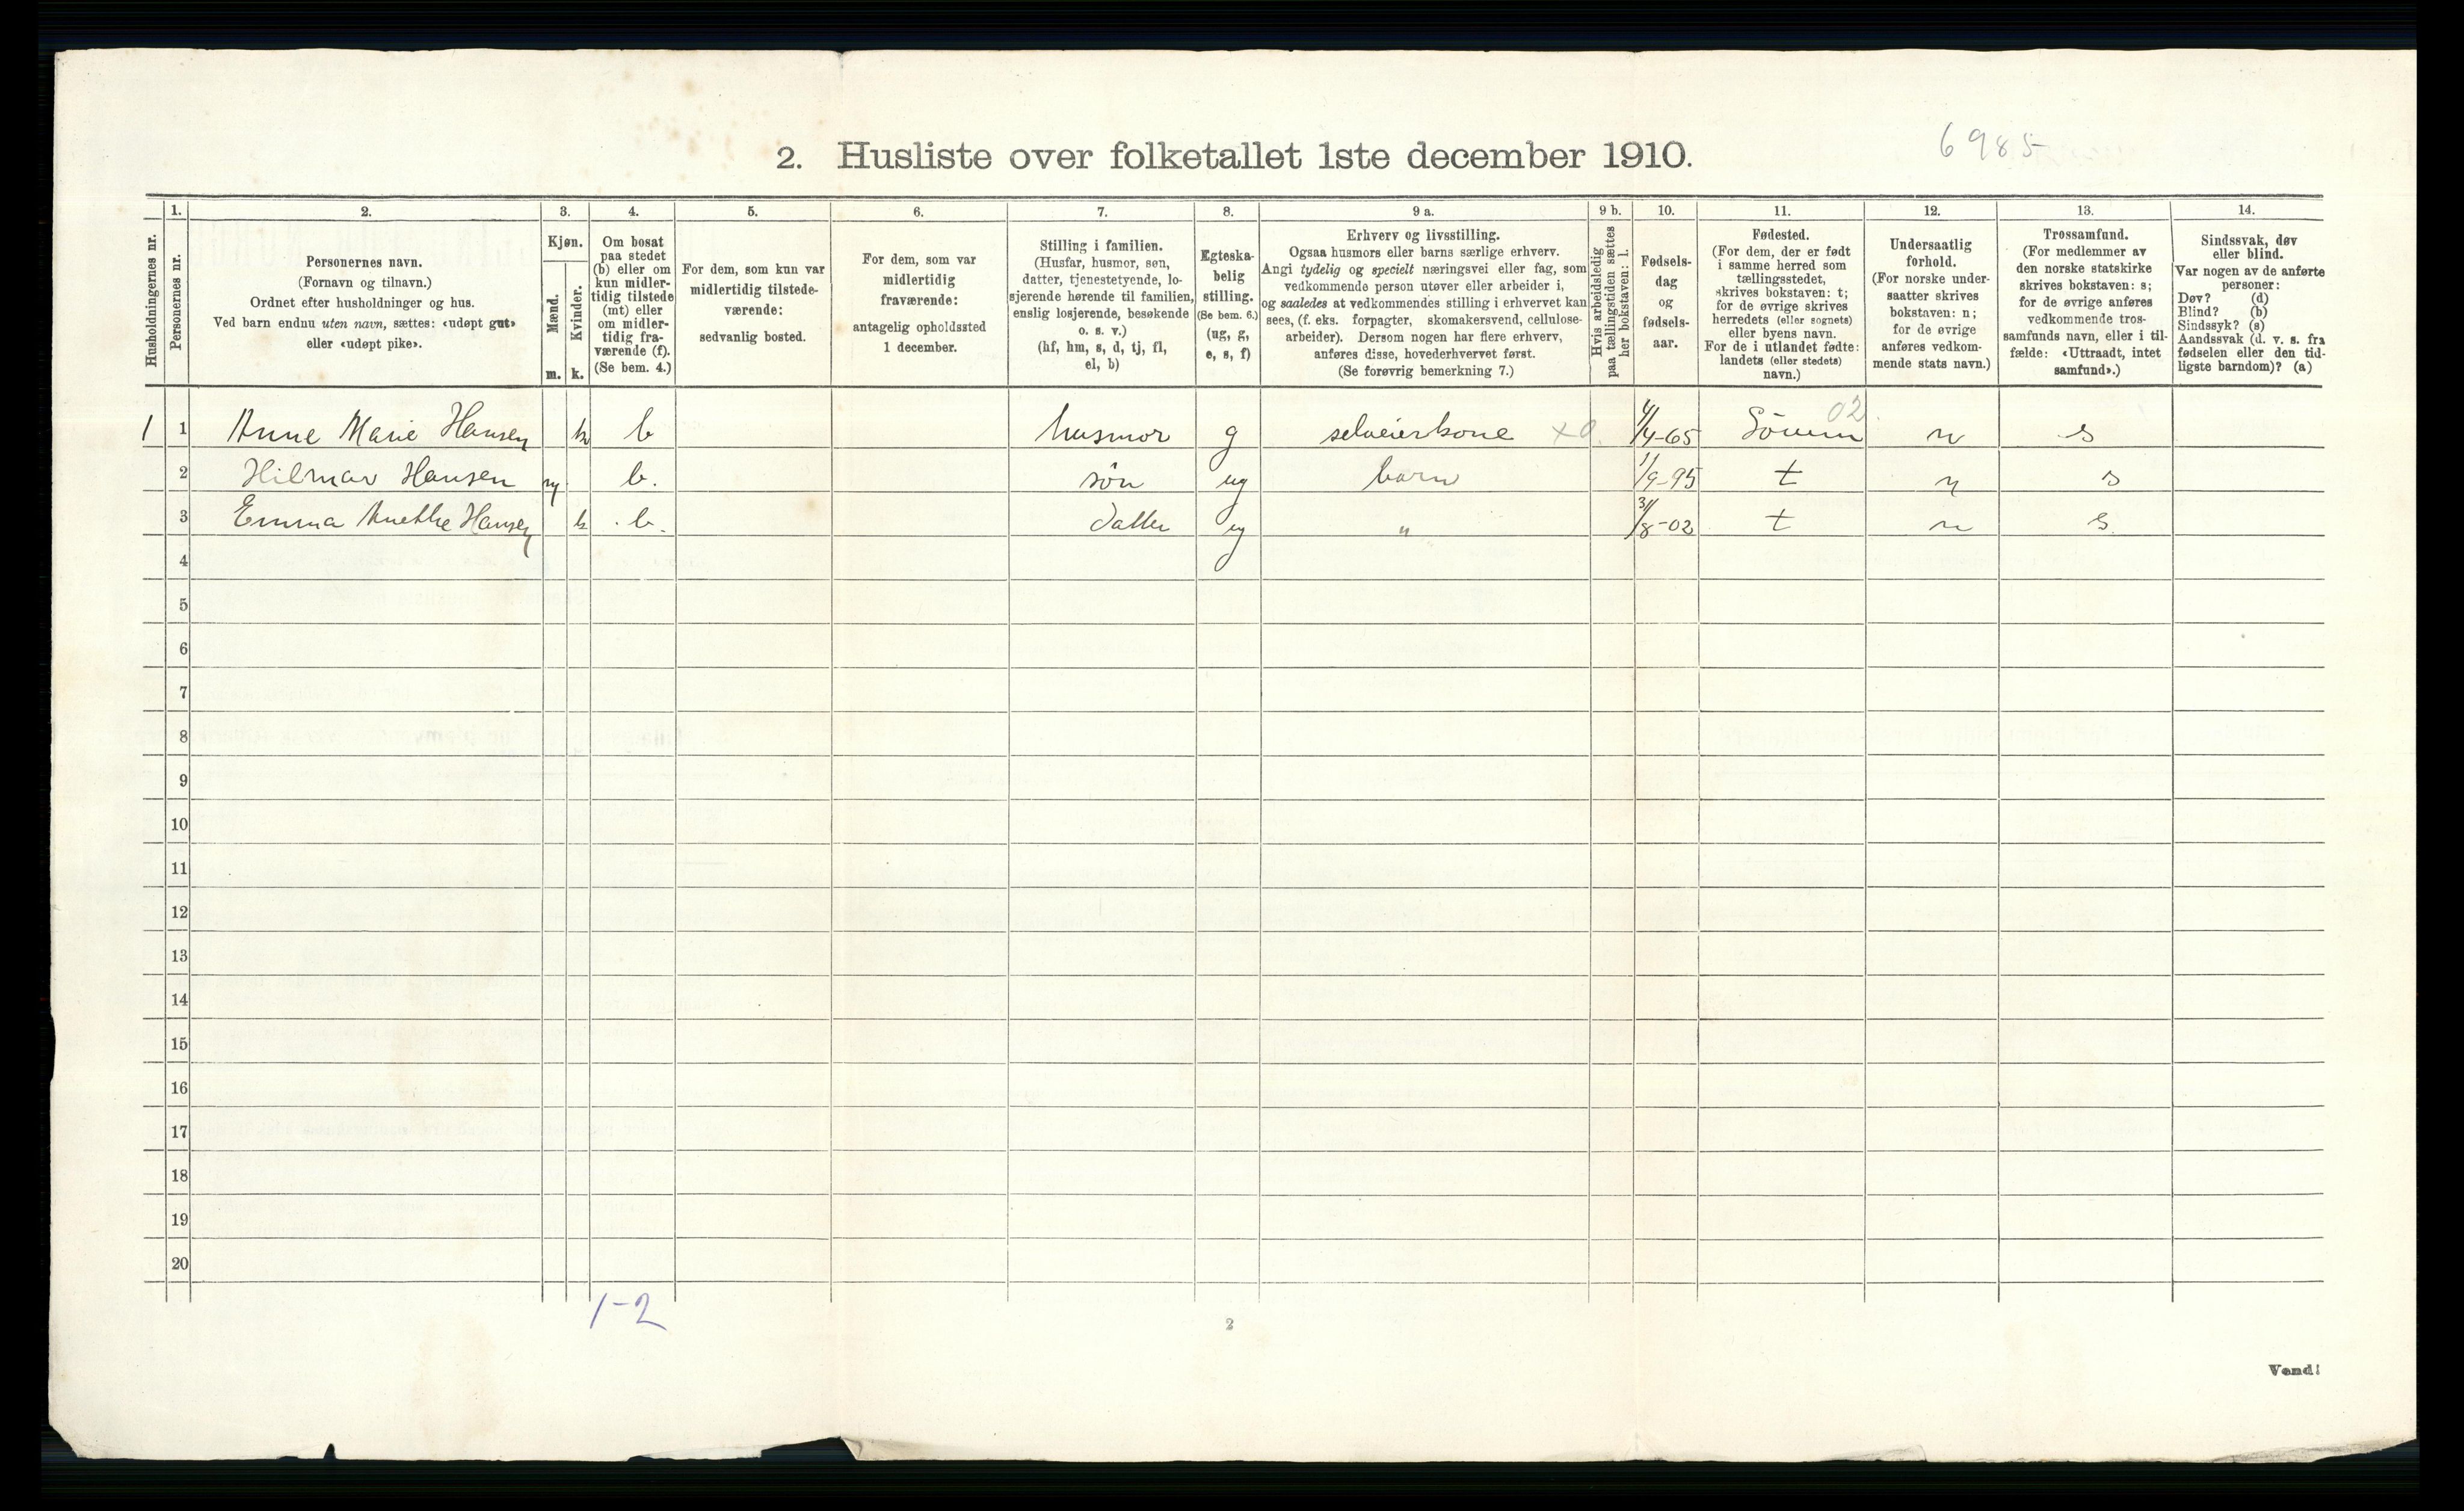 6985
2. Husliste over folketallet 1ste december 1910.
Husholdningernes nr.
1.
Personernes nr.
2.
Personernes navn.
(Fornavn og tilnavn.)
Ordnet efter husholdninger og hus.
Ved barn endnu uten navn, sættes: «udøpt gut»
eller «udøpt pike».
3.
Kjøn.
Mænd.
Kvinder.
m. k.
4.
Om bosat
paa stedet
(b) eller om
kun midler-
tidig tilstede
(mt) eller
om midler-
tidig fra-
værende (f).
(Se bem. 4.)
5.
For dem, som kun var
midlertidig tilstede-
værende:
sedvanlig bosted.
6.
For dem, som var
midlertidig
fraværende:
antagelig opholdssted
1 december.
7.
Stilling i familien.
(Husfar, husmor, søn,
datter, tjenestetyende, lo-
sjerende hørende til familien,
enslig losjerende, besøkende
o. s. v.)
(hf, hm, s, d, tj, fl,
el, b)
8.
Egteska-
belig
stilling.
(Se bem. 6.)
(ug, g,
e, s, f)
9 a.
Erhverv og livsstilling.
Ogsaa husmors eller barns særlige erhverv.
Angi tydelig og specielt næringsvei eller fag, som
vedkommende person utøver eller arbeider i,
og saaledes at vedkommendes stilling i erhvervet kan
sees, (f. eks. forpagter, skomakersvend, cellulose-
arbeider). Dersom nogen har flere erhverv,
anføres disse, hovederhvervet først.
(Se forøvrig bemerkning 7.)
9 b.
Hvis arbeidsledig
paa tællingstiden sættes
her bokstaven: l.
10.
Fødsels-
dag
og
fødsels-
aar.
11.
Fødested.
(For dem, der er født
i samme herred som
tællingsstedet,
skrives bokstaven: t;
for de øvrige skrives
herredets (eller sognets)
eller byens navn.
For de i utlandet fødte:
landets (eller stedets)
navn.)
12.
Undersaatlig
forhold.
(For norske under-
saatter skrives
bokstaven: n;
for de øvrige
anføres vedkom-
mende stats navn.)
13.
Trossamfund.
(For medlemmer av
den norske statskirke
skrives bokstaven: s;
for de øvrige anføres
vedkommende tros-
samfunds navn, eller i til-
fælde: «Uttraadt, intet
samfund».)
14.
Sindssvak, døv
eller blind.
Var nogen av de anførte
personer:
Døv? (d)
Blind? (b)
Sindssyk? (s)
Aandssvak (d. v. s. fra
fødselen eller den tid-
ligste barndom)? (a)
1 1 Anne Marie Hansen k b husmor g selveierkone x0. 4/4-65 02. n s
2 Hilmar Hansen m b. søn ug barn 1/9-95 t n s
3 Emma Anethe Hansen k b. datter ug " 31/8-02 t n s
4
5
6
7
8
9
10
11
12
13
14
15
16
17
18
19
20
1-2
2
Vend!